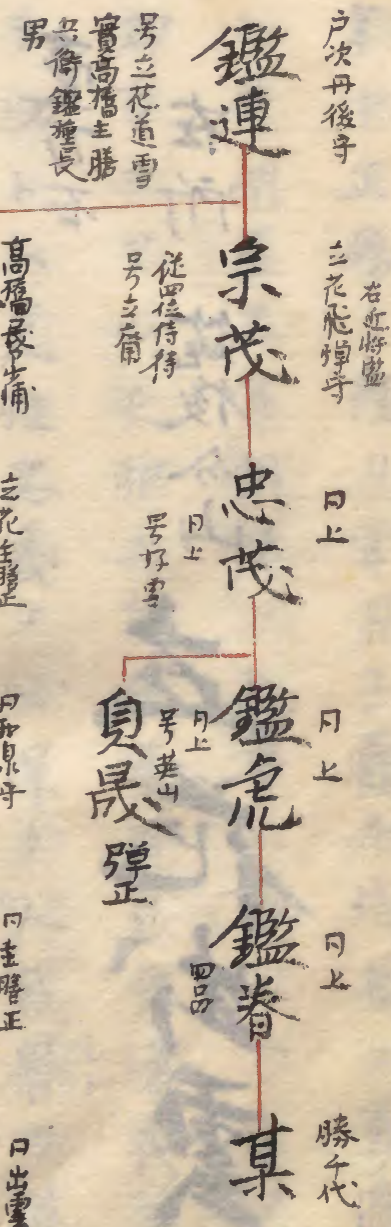 戸次丹後守
鑑連
号立花道雪
實高橋主膳
兵衛鑑種長
男
右近将監
立花飛弾守
宗茂
従四位侍待
号立齋
同上
忠茂
同上
号好雪
同上
鑑虎
同上
号英山
貞晟
弾正
同上
鑑春
四品
勝千代
某
立花主膳正
同和泉守
同主膳正
同出雲